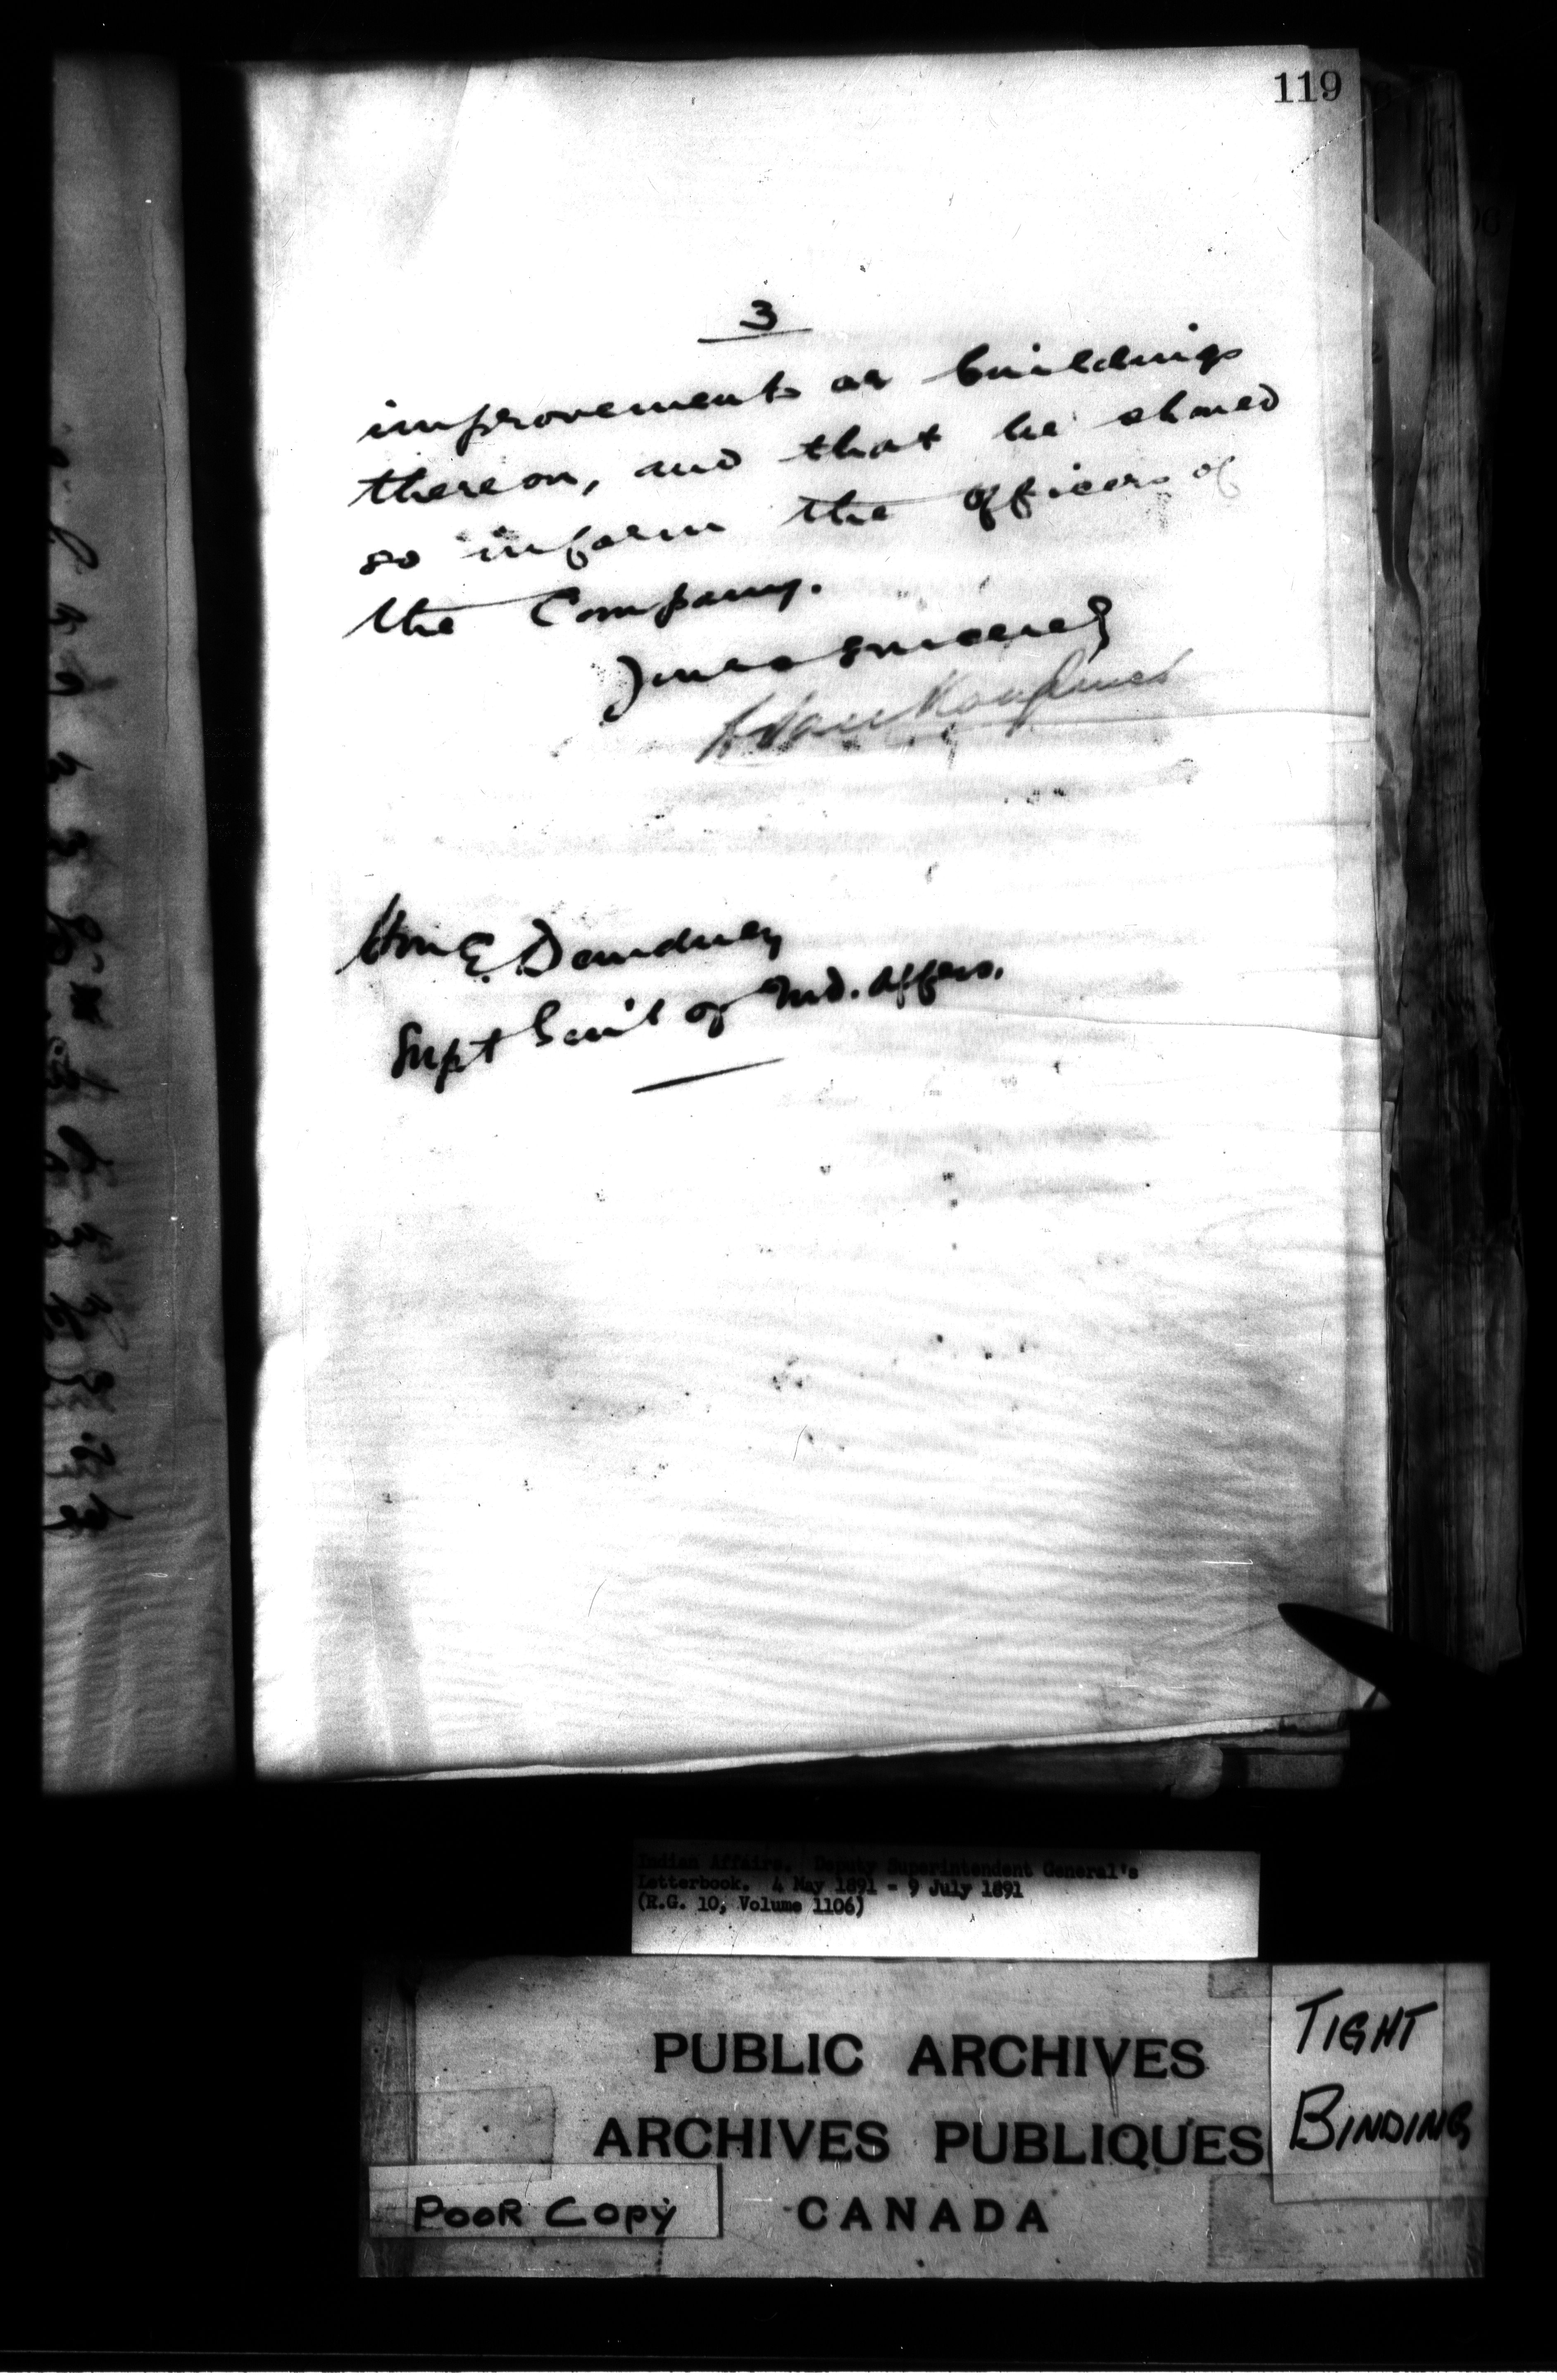 119
3
improvements or buildings
thereon, and that he should
so inform the Officers of
the Company.
Yours sincerely
L Vankoughnet
Hon E. Dewdney
Supt Genl of Ind. Affrs.
Indian Affairs. Deputy Superintendent General's
Letterbook. 4 May 1891 - 9 July 1891
(R.G. 10, Volume 1106)
PUBLIC ARCHIVES
ARCHIVES PUBLIQUES
CANADA
TIGHT
BINDING
POOR COPY